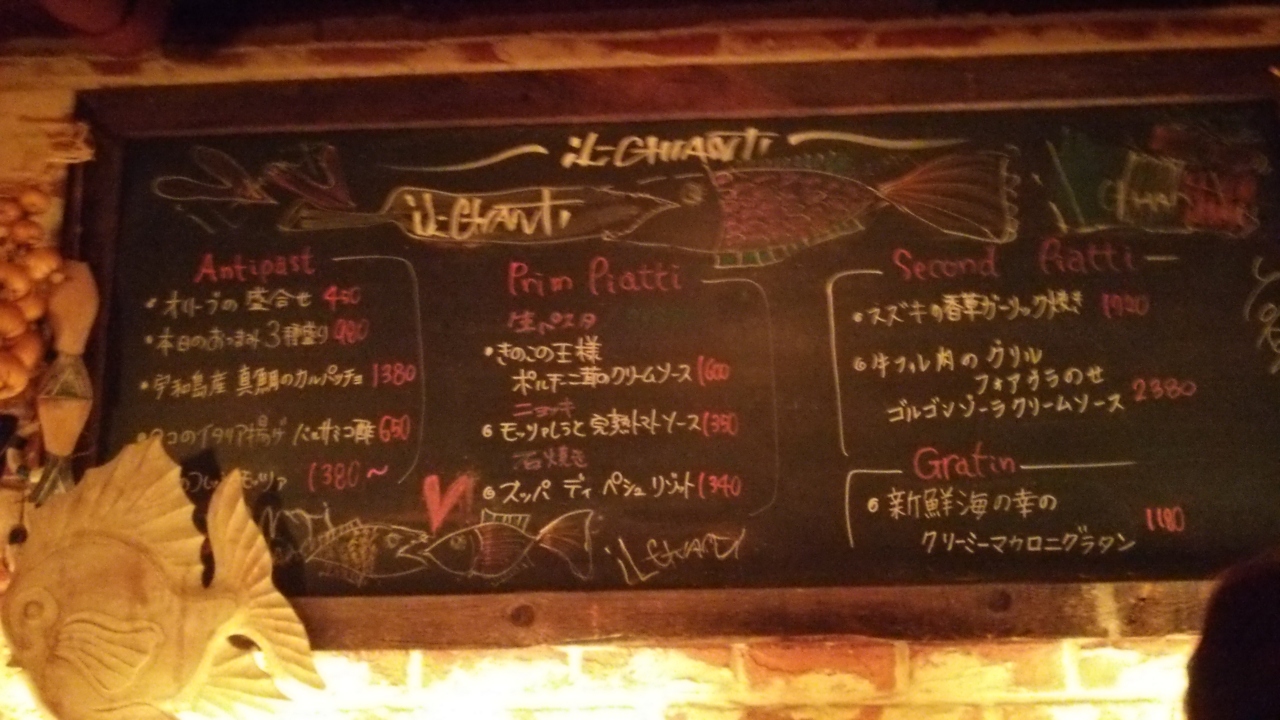 iL-CHIANTI
iL-CHIANTI
CHIAN
Antipast
オリーブの盛合せ 450
本日のおつまみ3種盛り 980
宇和島産 真鯛のカルパッチョ 1380
タコのイタリア揚げ バルサミコ酢 650
モッツァ 1380~
Prim Piatti
生パスタ
きのこの王様
ポルチーニ茸のクリームソース 1600
ニョッキ
モッツァレラと完熟トマトソース 1350
石焼き
ズッパ ディ ペシェ リゾット 1340
iL CHIANTI
Second Piatti
スズキの香草ガーリック焼き
牛フィレ肉のグリル
フォアグラのせ
ゴルゴンゾーラクリームソース 2380
Gratin
新鮮海の幸の
クリーミーマカロニグラタン 1180